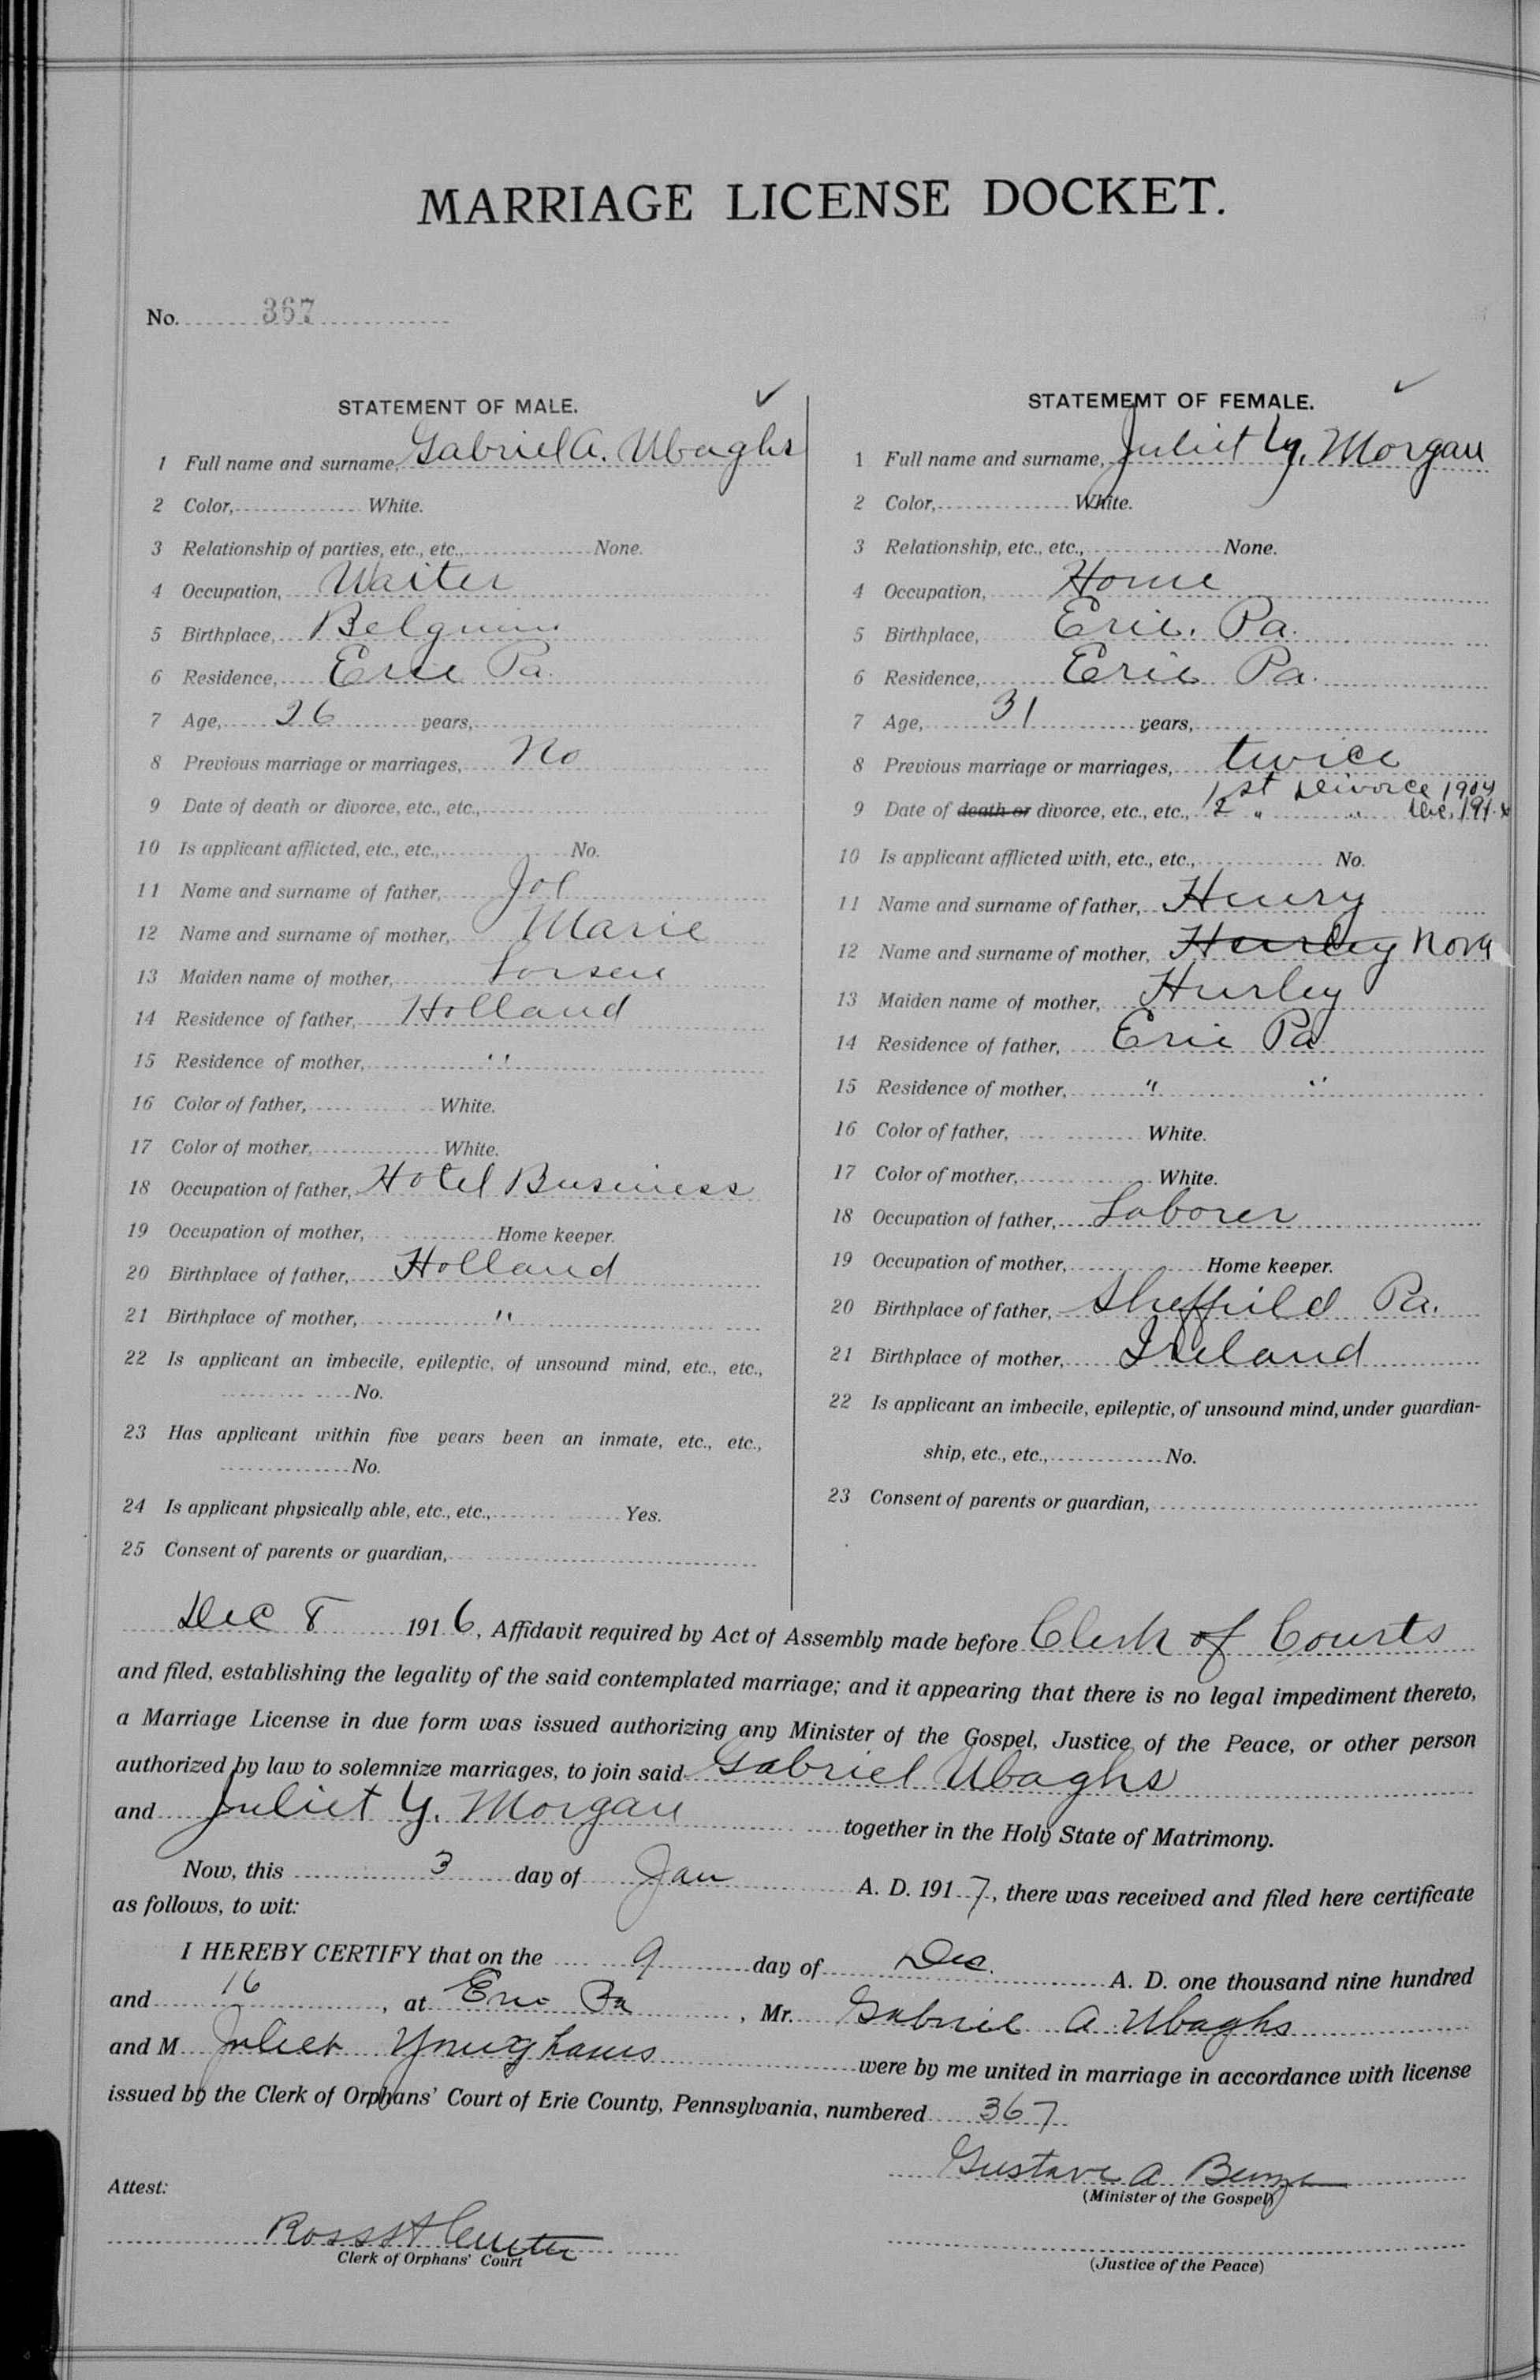 MARRIAGE LICENSE DOCKET.
No. 367
STATEMENT OF MALE.
1 Full name and surname, Gabriel A. Ubaghs
2 Color, White.
3 Relationship of parties, etc., etc., None.
4 Occupation, Waiter
5 Birthplace, Belguim
6 Residence, Erie Pa.
7 Age, 26 years,
8 Previous marriage or marriages, No
9 Date of death or divorce, etc., etc.,
10 Is applicant afflicted, etc., etc., No.
11 Name and surname of father, Joe
12 Name and surname of mother, Marie
13 Maiden name of mother, Lorsen
14 Residence of father, Holland
15 Residence of mother, "
16 Color of father, White.
17 Color of mother, White.
18 Occupation of father, Hotel Business
19 Occupation of mother, Home keeper.
20 Birthplace of father, Holland
21 Birthplace of mother, "
22 Is applicant an imbecile, epileptic, of unsound mind, etc., etc.,
No.
23 Has applicant within five years been an inmate, etc., etc.,
No.
24 Is applicant physically able, etc., etc., Yes.
25 Consent of parents or guardian,
STATEMEMT OF FEMALE.
1 Full name and surname, Juliet Y. Morgan
2 Color, White.
3 Relationship, etc., etc., None.
4 Occupation, Home
5 Birthplace, Erie, Pa.
6 Residence, Erie Pa.
7 Age, 31 years,
8 Previous marriage or marriages, twice
1st Divorce 1904
9 Date of death or divorce, etc., etc., 2 " " Dec. 191
10 Is applicant afflicted with, etc., etc., No.
11 Name and surname of father, Henry
12 Name and surname of mother, Hurley Nora
13 Maiden name of mother, Hurley
14 Residence of father, Erie Pa
15 Residence of mother, " "
16 Color of father, White.
17 Color of mother, White.
18 Occupation of father, Laborer
19 Occupation of mother, Home keeper.
20 Birthplace of father, Sheffield Pa.
21 Birthplace of mother, Ireland
22 Is applicant an imbecile, epileptic, of unsound mind, under guardian-
ship, etc., etc., No.
23 Consent of parents or guardian,
Dec 8 1916, Affidavit required by Act of Assembly made before Clerk of Courts
and filed, establishing the legality of the said contemplated marriage; and it appearing that there is no legal impediment thereto,
a Marriage License in due form was issued authorizing any Minister of the Gospel, Justice of the Peace, or other person
authorized by law to solemnize marriages, to join said Gabriel Ubaghs
and Juliet Y. Morgan together in the Holy State of Matrimony.
Now, this 3 day of Jan A. D. 1917, there was received and filed here certificate
as follows, to wit:
I HEREBY CERTIFY that on the 9 day of Dec. A. D. one thousand nine hundred
and 16, at Erie Pa, Mr. Gabriel A Ubaghs
and M Juliet Younghans were by me united in marriage in accordance with license
issued by the Clerk of Orphans' Court of Erie County, Pennsylvania, numbered 367
Gustave A Benze
(Minister of the Gospel)
Attest:
Ross
Clerk of Orphans' Court
(Justice of the Peace)